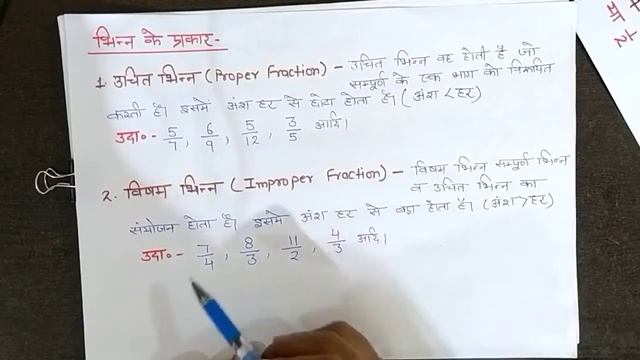 भिन्न के प्रकार-
1. उचित भिन्न (Proper Fraction) - उचित भिन्न वह होती है जो
सम्पूर्ण के एक भाग को निरूपित
करती है। इसमें अंश हर से छोटा होता है। (अंश < हर)
उदा०- 5/7, 6/9, 5/12, 3/5 आदि।
2. विषम भिन्न (Improper Fraction) - विषम भिन्न सम्पूर्ण भिन्न
व उचित भिन्न का
संयोजन होता है। इसमें अंश हर से बड़ा होता है। (अंश > हर)
उदा०- 7/4, 8/3, 11/2, 4/3 आदि।